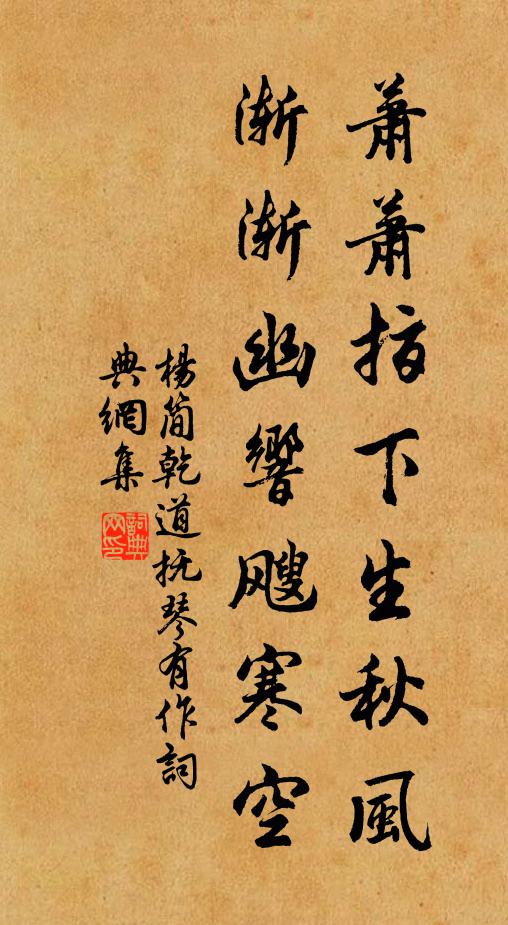 蕭蕭指下生秋風
漸漸幽響颼寒空
楊簡乾道撫琴有作詞
典網集
詞典網印